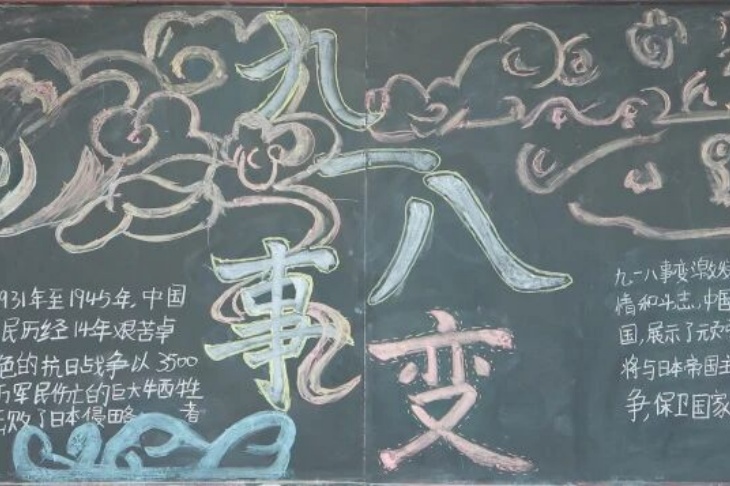 九一八
事变
931年至1945年,中国
民历经14年艰苦卓
色的抗日战争以3500
万军民伤亡的巨大牺牲
败了日本侵略 者
九一八事变激发
情和斗志,中国
国,展示了
将与日本帝国主
争,保卫国家